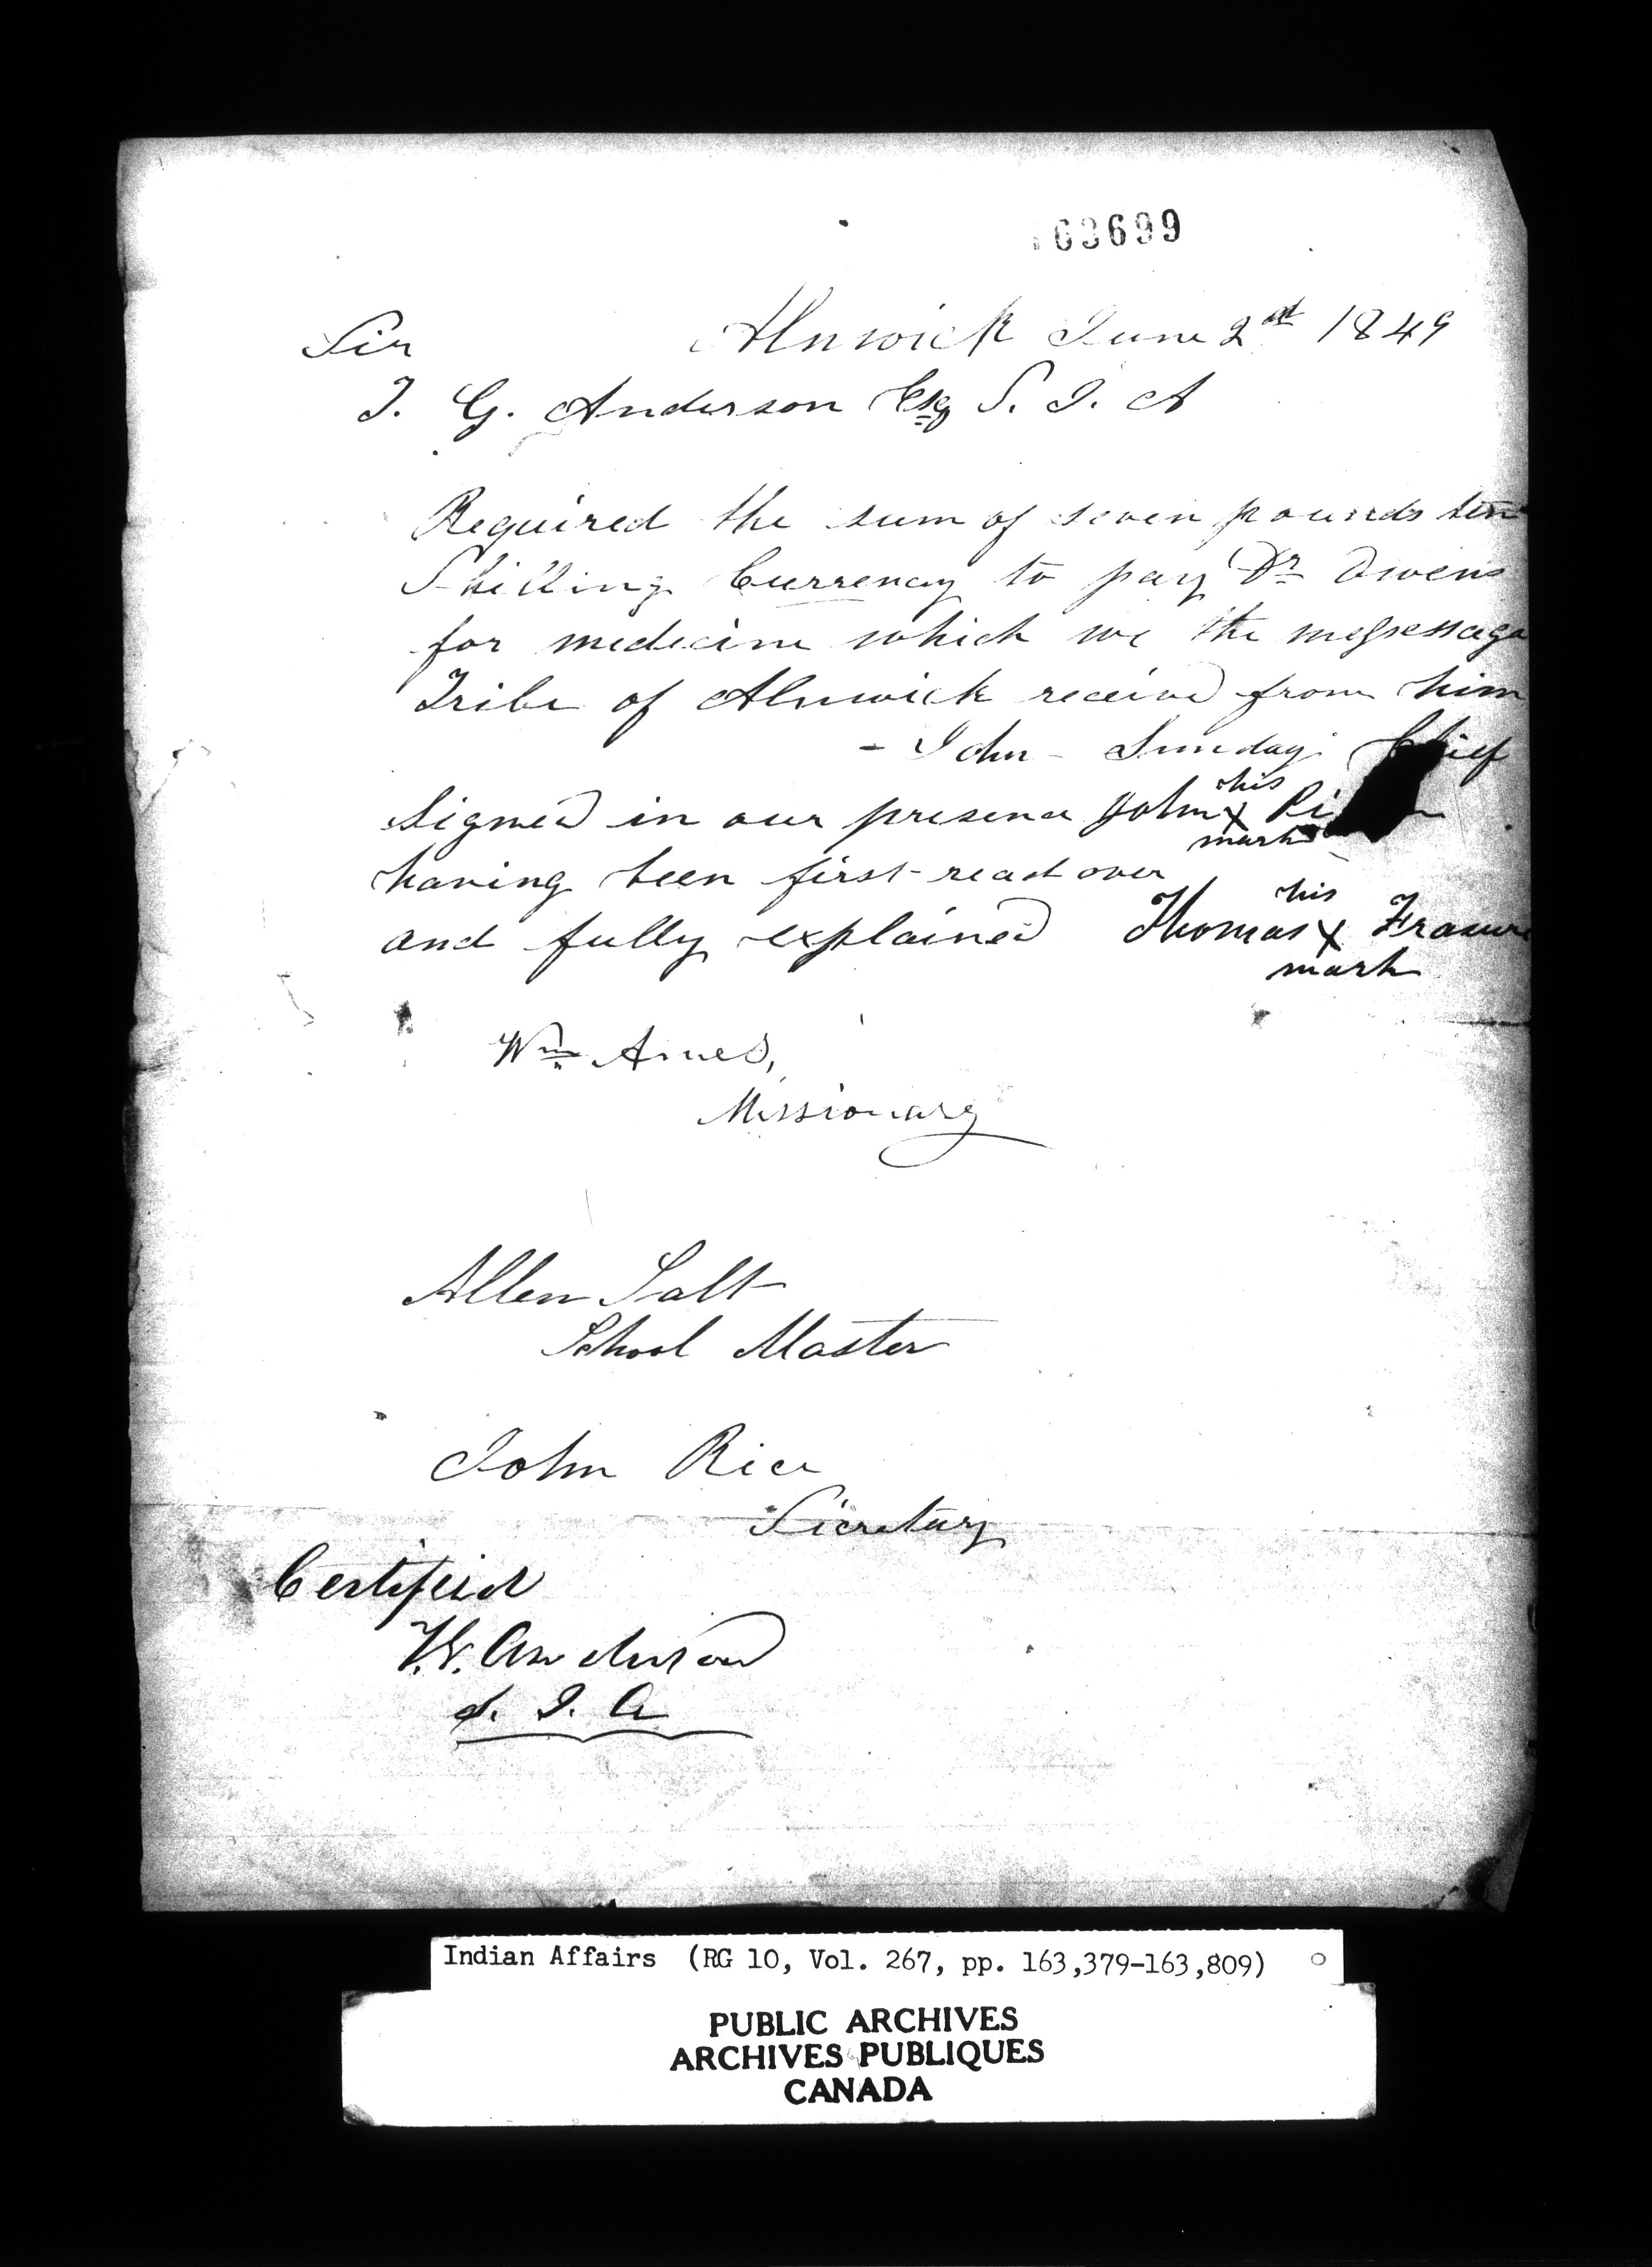 163699
Sir Alnwick June 2nd 1849
T. G. Anderson Esq S. I. A
Required the sum of seven pounds ten
Shilling Currency to pay Dr Owens
for medicine which we the messessaga
Tribe of Alnwick received from him
- John - Sunday Chief
Signed in our presence John his x mark
having been first read over
and fully explained Thomas his x mark Frasure
Wm Ames,
Missionary
Allen Salt
School Master
John Rice
Sicretary
Certified
T. G. Anderson
S. I. A
Indian Affairs (RG 10, Vol. 267, pp. 163,379-163,809)
PUBLIC ARCHIVES
ARCHIVES PUBLIQUES
CANADA